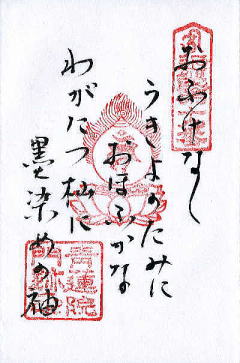 おふけなく
うきよのたみに
おほふかな
わがたつ杣に
墨染めの袖
青蓮院
門跡